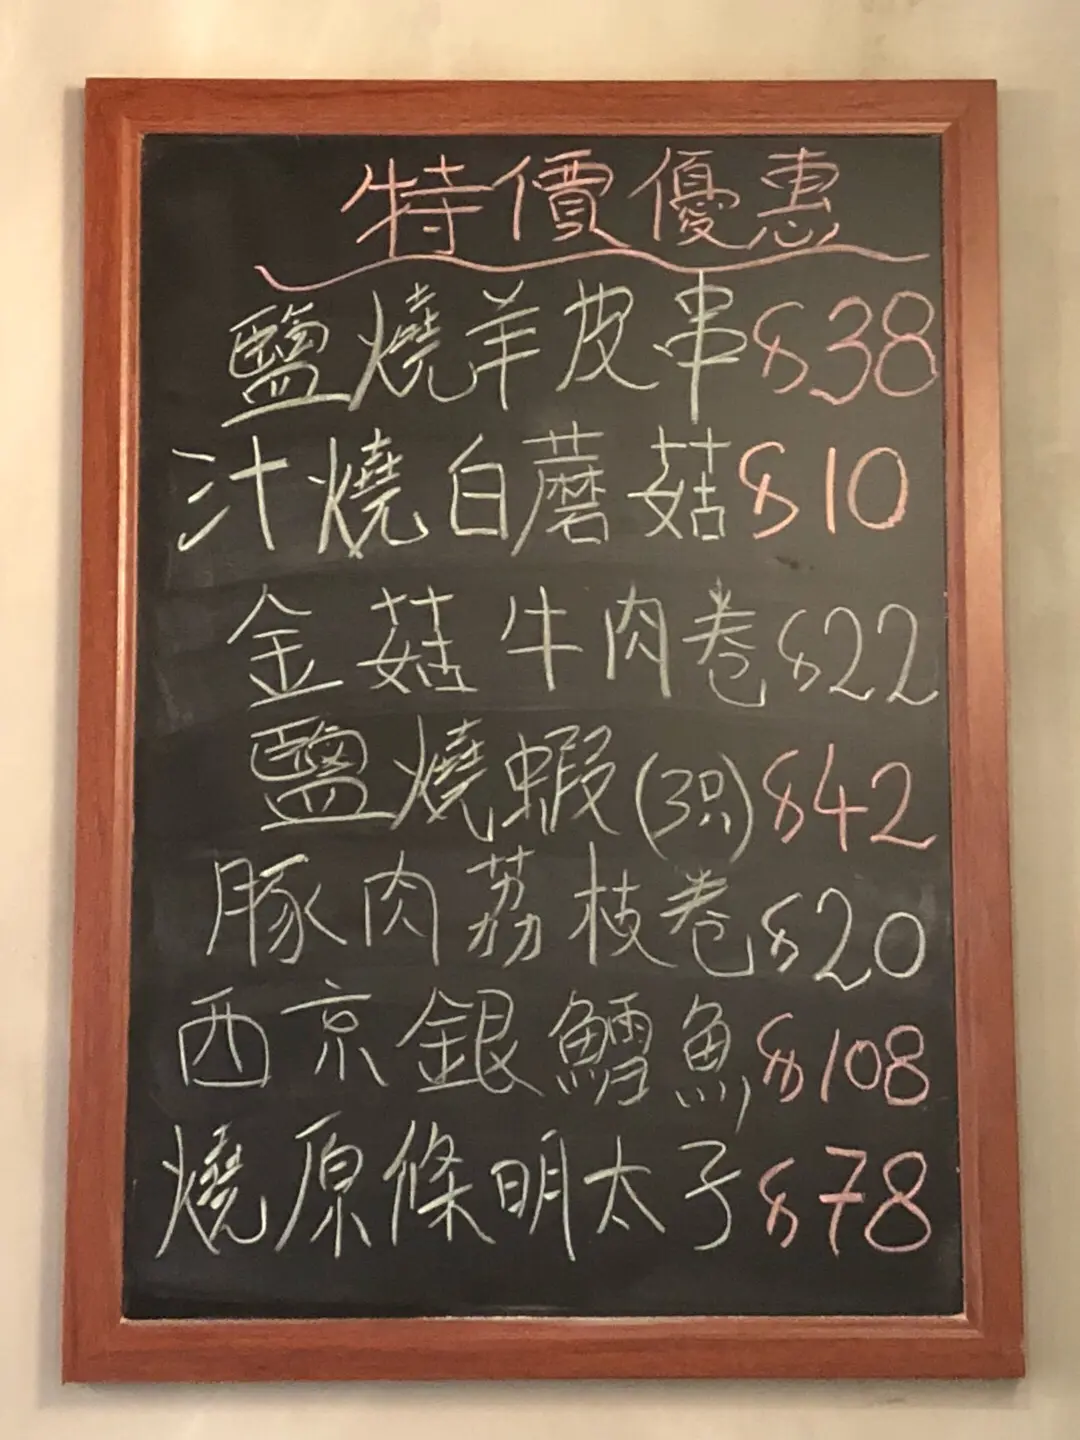 特價優惠
鹽燒羊皮串$38
汁燒白蘑菇$10
金菇牛肉卷$22
鹽燒蝦(3只)$42
豚肉荔枝卷$20
西京銀鱈魚$108
燒原條明太子$78